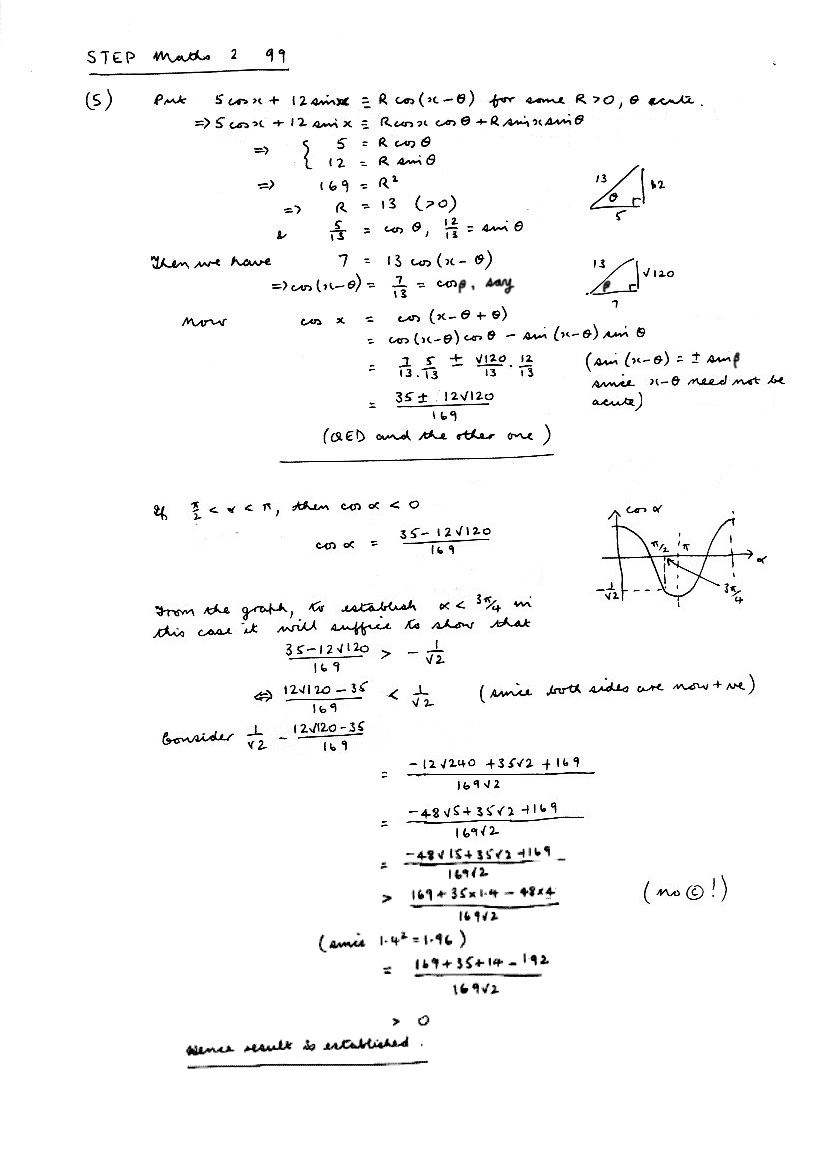 STEP Maths 2 99
(5) Put 5 cos x + 12 sin x ≡ R cos (x − θ) for some R > 0, θ acute.
⇒ 5 cos x + 12 sin x ≡ R cos x cos θ + R sin x sin θ
⇒ { 5 = R cos θ
12 = R sin θ
⇒ 169 = R²
⇒ R = 13 (>0)
& 5/13 = cos θ, 12/13 = sin θ
13 θ 12 5
Then we have 7 = 13 cos (x − θ)
⇒ cos (x − θ) = 7/13 = cos β, say
13 β √120 7
Now cos x = cos (x − θ + θ)
= cos (x − θ) cos θ − sin (x − θ) sin θ
= 7/13 . 5/13 ± √120/13 . 12/13 (sin (x − θ) = ± sin β
since x − θ need not be
acute)
= 35 ± 12√120 / 169
(QED and the other one)
If π/2 < α < π, then cos α < 0
cos α = 35 − 12√120 / 169
cos α π/2 π α −1/√2 3π/4
From the graph, to establish α < 3π/4 in
this case it will suffice to show that
35 − 12√120 / 169 > − 1/√2
⇔ 12√120 − 35 / 169 < 1/√2 (since both sides are now +ve)
Consider 1/√2 − 12√120 − 35 / 169
= −12√240 + 35√2 + 169 / 169√2
= −48√5 + 35√2 + 169 / 169√2
= −48√15 + 35√2 + 169 / 169√2
> 169 + 35×1.4 − 48×4 / 169√2 (no ©!)
(since 1.4² = 1.96)
= 169 + 35 + 14 − 192 / 169√2
> 0
Hence result is established.